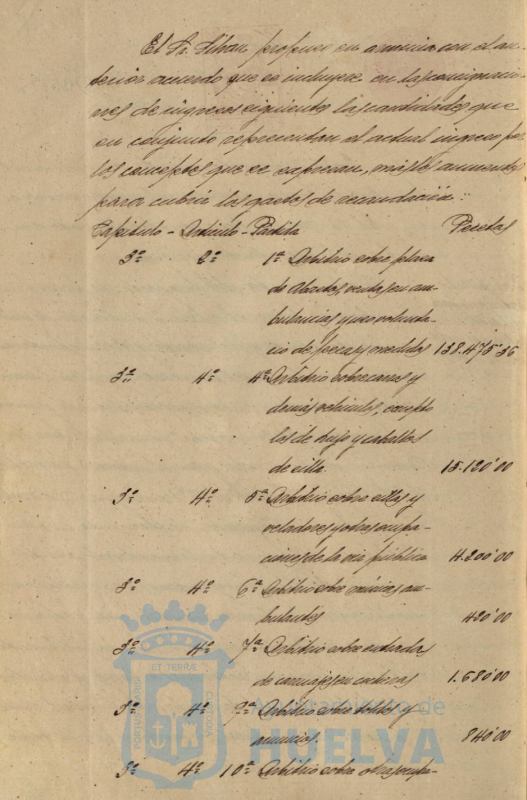 El Sr. propone en armonía con el an-
terior acuerdo que se incluyese en las consignacio-
nes de ingresos siguientes las cantidades que
en conjunto representan el actual ingreso por
los conceptos que se expresan, más los aumentos
para cubrir los gastos de recaudación:
Capítulo - Artículo - Partida Pesetas
3º 2º 1ª Arbitrio sobre plaza
de Abastos, ventas en am-
bulancias y uso volunta-
rio de pesas y medidas 138.475'36
3º 4º 4ª Arbitrio sobre carros y
demás vehículos, excepto
los de lujo y caballos
de silla 15.120'00
3º 4º 5ª Arbitrio sobre sillas y
veladores y otras ocupa-
ciones de la vía pública 4.200'00
3º 4º 6ª Arbitrio sobre músicas am-
bulantes 420'00
3º 4º 7ª Arbitrio sobre entrada
de carruajes en 1.680'00
3º 4º 9ª Arbitrio sobre toldos y
anuncios. 840'00
3º 4º 10ª Arbitrio sobre otras ocupa-
ET TERRAE
PORTUS MARIS
CUSTODIA
Ayuntamiento de
HUELVA